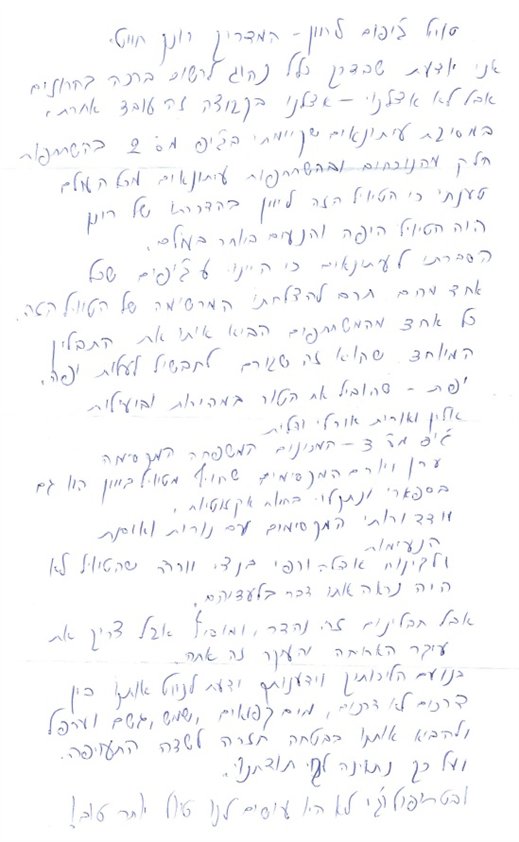 טיול ג'יפים ליוון - המדריך רונן חייט.
אני יודעת שבדרך כלל נהוג לרשום ברכה בחרוזים
אבל לא אצלנו - אצלנו בקבוצה זה עובד אחרת.
במסיבת עיתונאים שקיימתי בג'יפ מס' 2 בהשתתפות
חלק מהנוכחים ובהשתתפות עיתונאים מכל העולם
טענתי כי הטיול הזה ליוון בהדרכתו של רונן
הוא הטיול היפה והנעים ביותר בעולם.
הסברתי לעיתונאים כי היינו 6 ג'יפים שכל
אחד מהם תרם להצלחתו המרשימה של הטיול הזה.
כל אחד מהמשתתפים הביא איתו את התבלין
המיוחד שהוא זה שגורם לתבשיל לעלות יפה.
יפת - שהוביל את הטור במהירות וביעילות
אילן ואורית אורלי ודלית
ג'יפ מס' 3 - המכונים המשפחה המקסימה
ערן ויורם המקסימים שחוץ מטיול ביוון הוא גם
בספארי ונתקלו בחיות אקזוטיות.
עודד ורותי המקסימים עם נורית ואוסנת
הנעימות
ולבינוח אבלה ורפי בנצי וורדה שהטיול לא
היה נראה אותו דבר בלעדיהם.
אבל תבלינים זה נהדר, ומוסיף אבל צריך את
עיקר הארוחה והעיקר זה אתה
בנועם הליכותיך וידענותך ידעת לנווט אותנו בין
דרכים לא דרכים, מים קפואים, שמש, גשם וערפל
ולהביא אותנו בבטחה חזרה לשדה התעופה.
ועל כך נתונה לך תודתנו.
ובטריפולוג'י לא היו עושים לנו טיול יותר טוב!